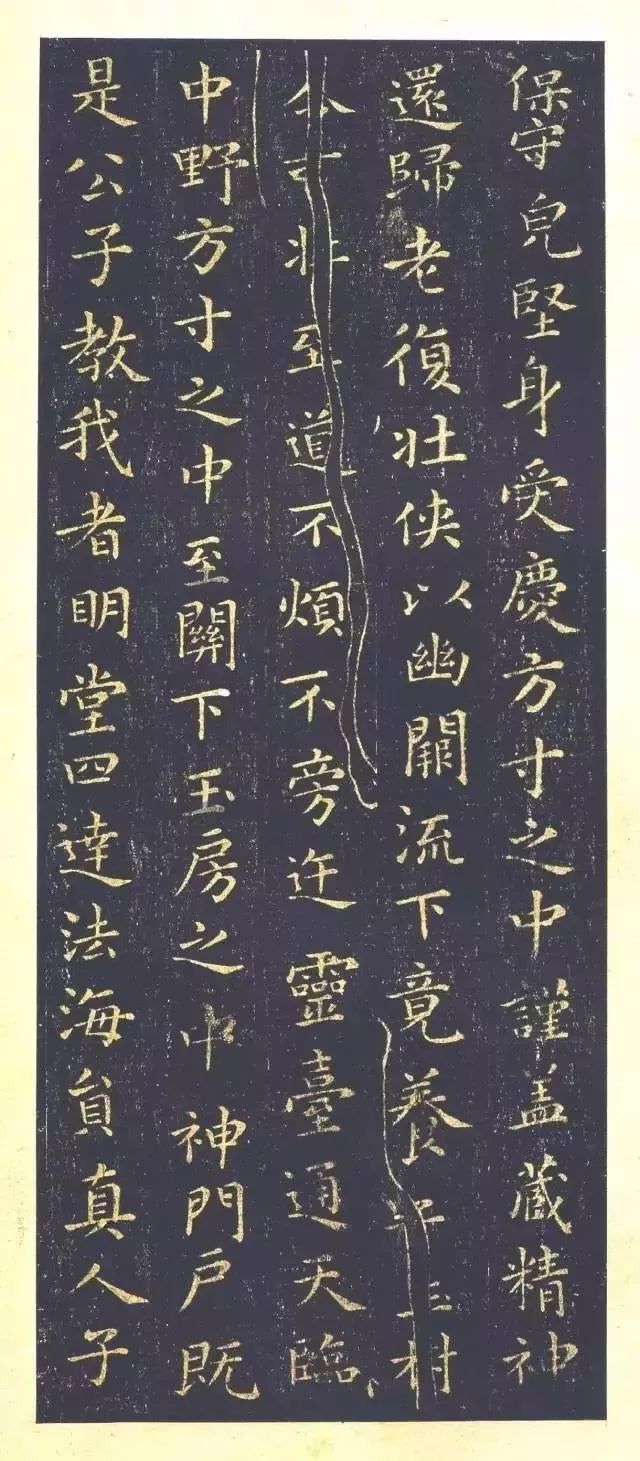 保守皃堅身受慶方寸之中謹盖藏精神
還歸老復壯侠以幽闕流下竟養玉
不至道不煩不旁迕靈臺通天臨
中野方寸之中至關下玉房之中神門戶既
是公子教我者明堂四達法海員真人子